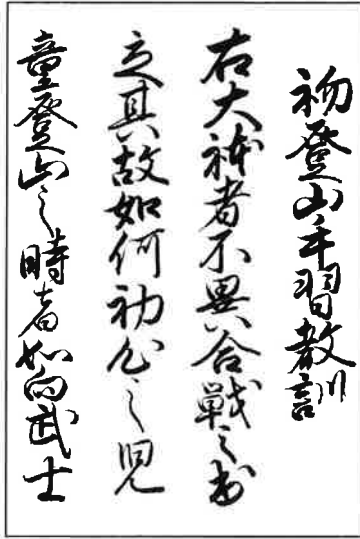 初登山手習教訓
右大躰者不異合戦之出
立其故如何初心之児
童登山之時者如向武士